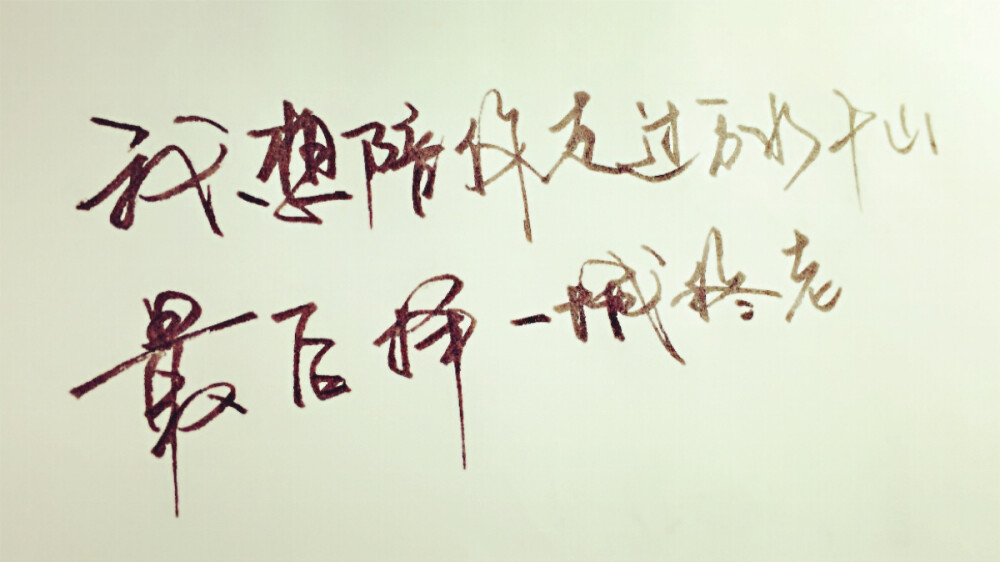 我想陪你走过万水千山
最后择一城终老